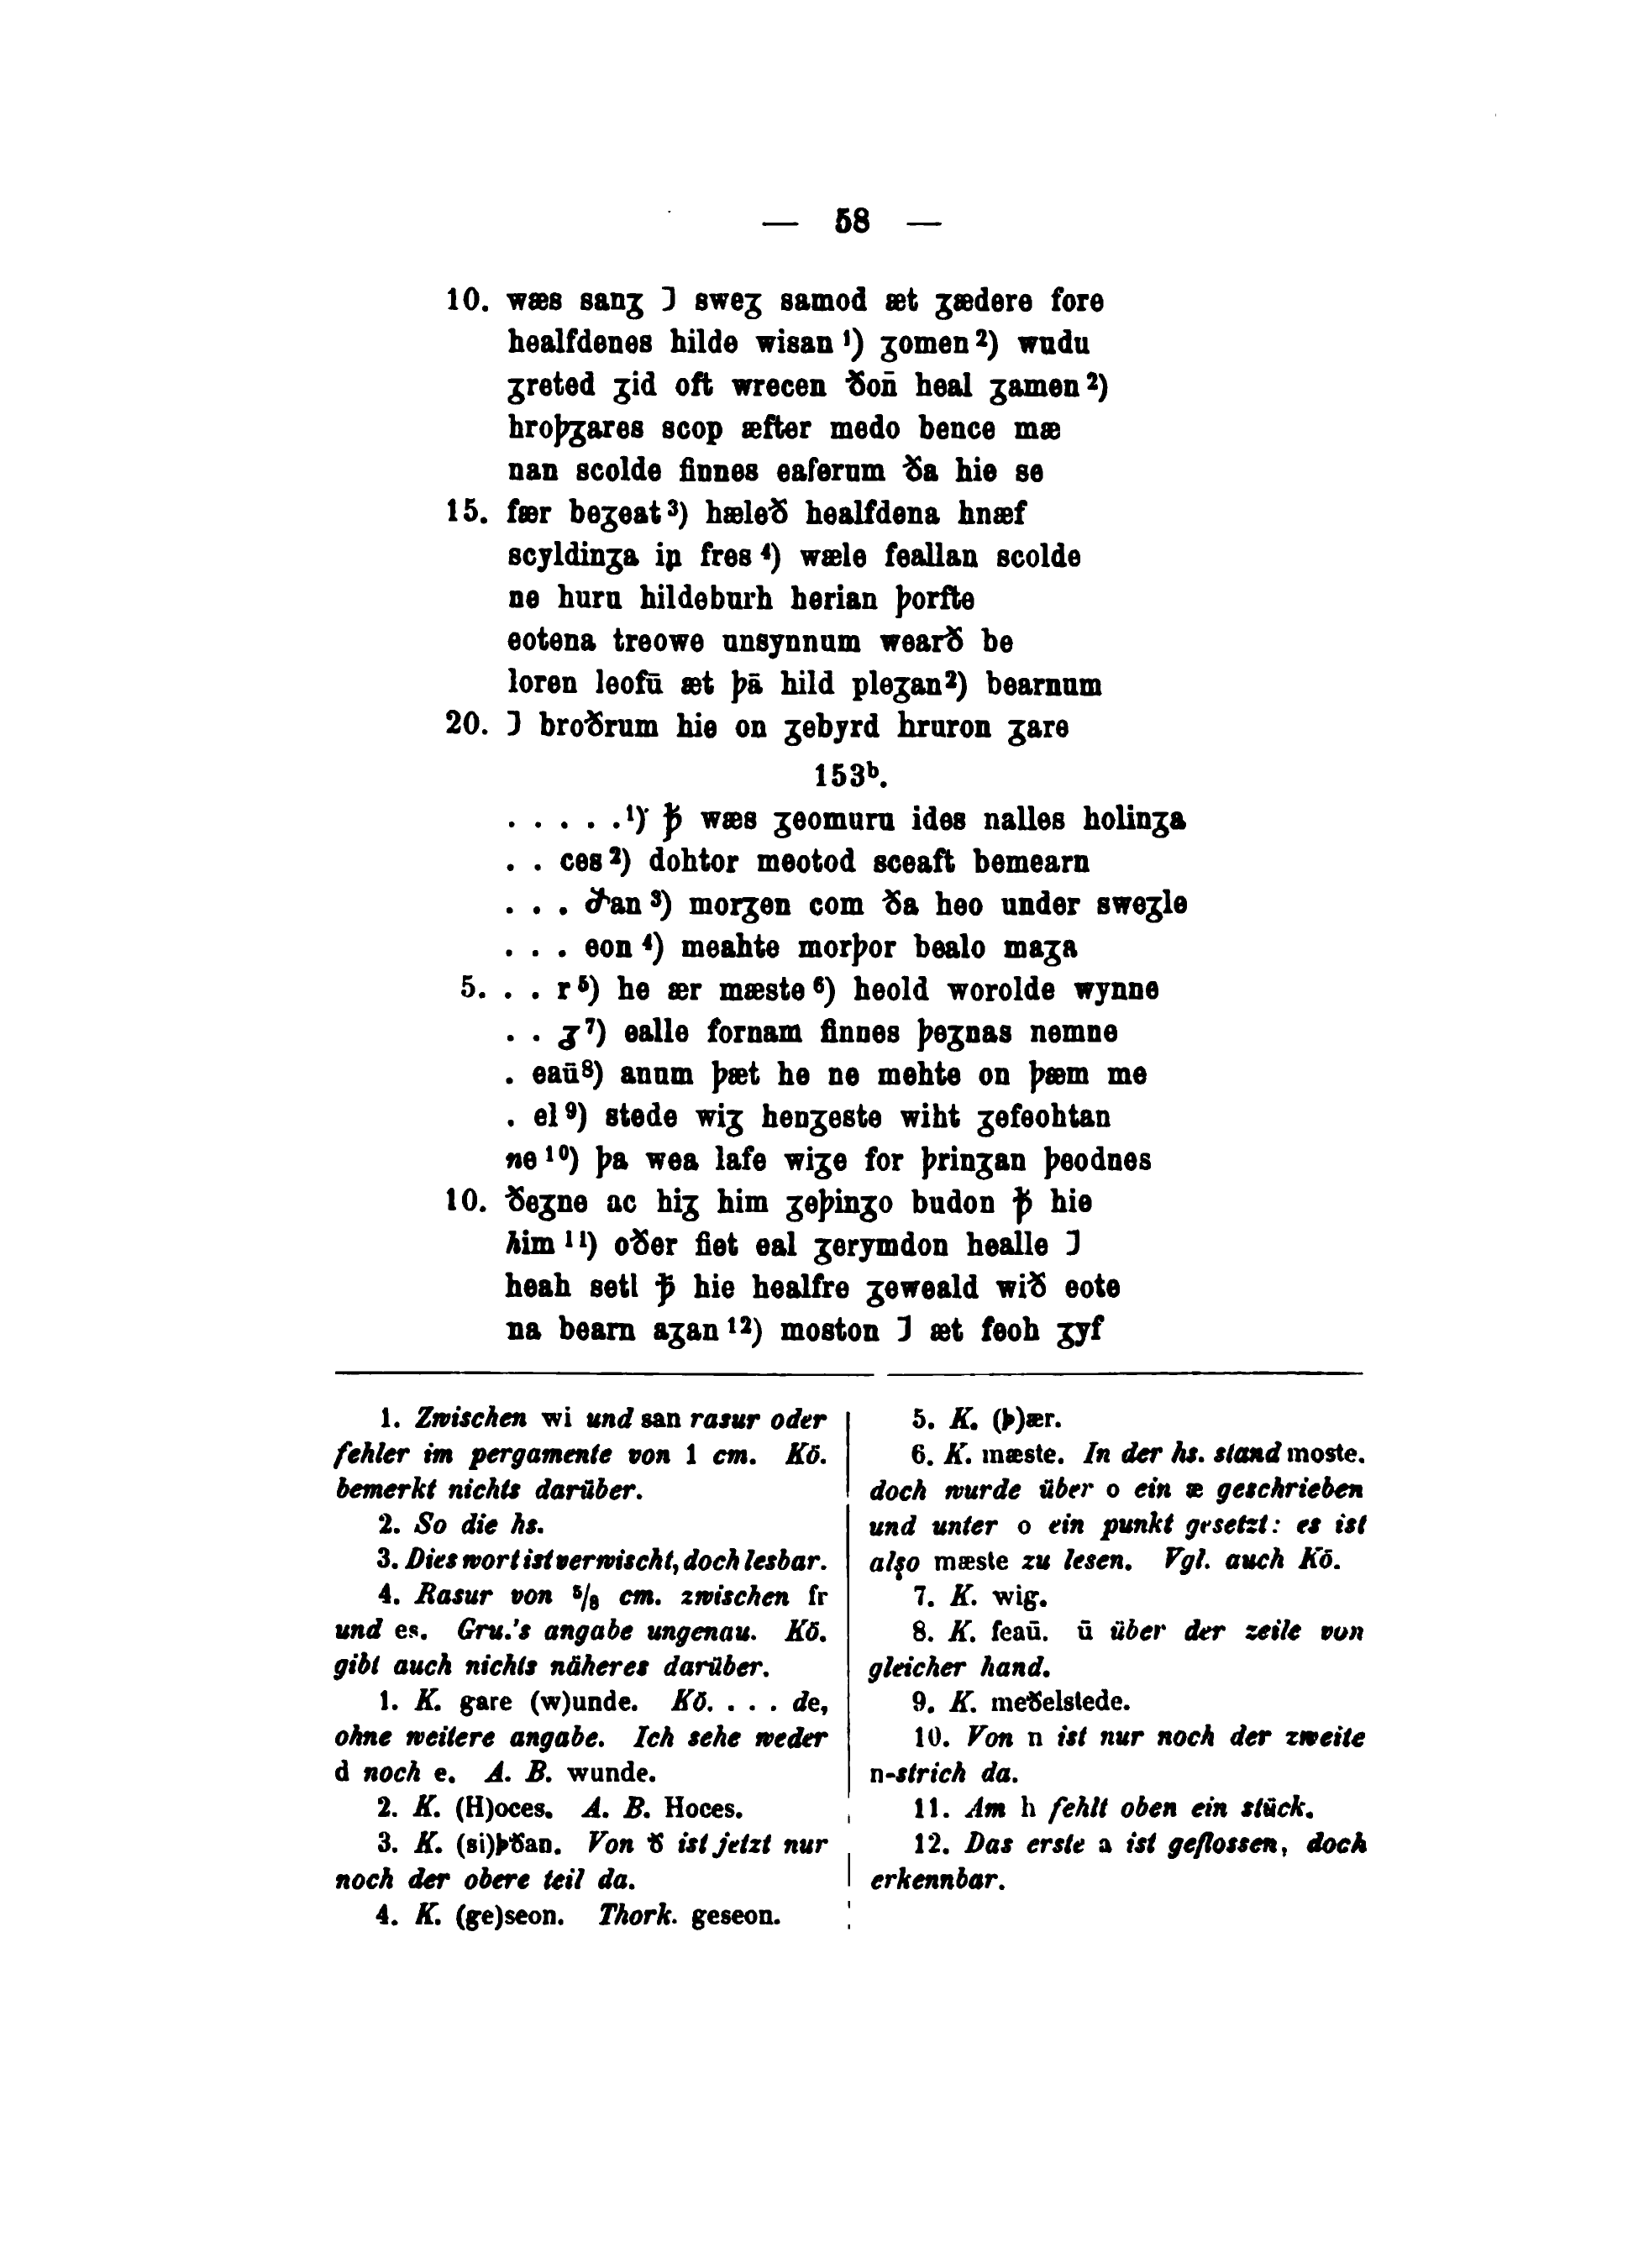 — 58 —
10. wæs sanʒ ⁊ sweʒ samod æt ʒædere fore
healfdenes hilde wisan ¹) ʒomen ²) wudu
ʒreted ʒid oft wrecen ðon̄ heal ʒamen ²)
hroþʒares scop æfter medo bence mæ
nan scolde finnes eaferum ða hie se
15. fær beʒeat ³) hæleð healfdena hnæf
scyldinʒa in fres ⁴) wæle feallan scolde
ne huru hildeburh herian þorfte
eotena treowe unsynnum wearð be
loren leofū æt þā hild pleʒan ²) bearnum
20. ⁊ broðrum hie on ʒebyrd hruron ʒare
153ᵇ.
. . . . . ¹) ꝥ wæs ʒeomuru ides nalles holinʒa
. . ces ²) dohtor meotod sceaft bemearn
. . . ðan ³) morʒen com ða heo under sweʒle
. . . eon ⁴) meahte morþor bealo maʒa
5. . . r ⁵) he ær mæste ⁶) heold worolde wynne
. . ʒ ⁷) ealle fornam finnes þeʒnas nemne
. eaū ⁸) anum þæt he ne mehte on þæm me
. el ⁹) stede wiʒ henʒeste wiht ʒefeohtan
ne ¹⁰) þa wea lafe wiʒe for þrinʒan þeodnes
10. ðeʒne ac hiʒ him ʒeþinʒo budon ꝥ hie
him ¹¹) oðer fiet eal ʒerymdon healle ⁊
heah setl ꝥ hie healfre ʒeweald wið eote
na bearn aʒan ¹²) moston ⁊ æt feoh ʒyf
1. Zwischen wi und san rasur oder
fehler im pergamente von 1 cm. Kö.
bemerkt nichts darüber.
2. So die hs.
3. Dies wort ist verwischt, doch lesbar.
4. Rasur von ⁵/₈ cm. zwischen fr
und es. Gru.'s angabe ungenau. Kö.
gibt auch nichts näheres darüber.
1. K. gare (w)unde. Kö. . . . de,
ohne weitere angabe. Ich sehe weder
d noch e. A. B. wunde.
2. K. (H)oces. A. B. Hoces.
3. K. (si)þðan. Von ð ist jetzt nur
noch der obere teil da.
4. K. (ge)seon. Thork. geseon.
5. K. (þ)ær.
6. K. mæste. In der hs. stand moste.
doch wurde über o ein æ geschrieben
und unter o ein punkt gesetzt: es ist
also mæste zu lesen. Vgl. auch Kö.
7. K. wig.
8. K. feaū. ū über der zeile von
gleicher hand.
9. K. meðelstede.
10. Von n ist nur noch der zweite
n-strich da.
11. Am h fehlt oben ein stück.
12. Das erste a ist geflossen, doch
erkennbar.